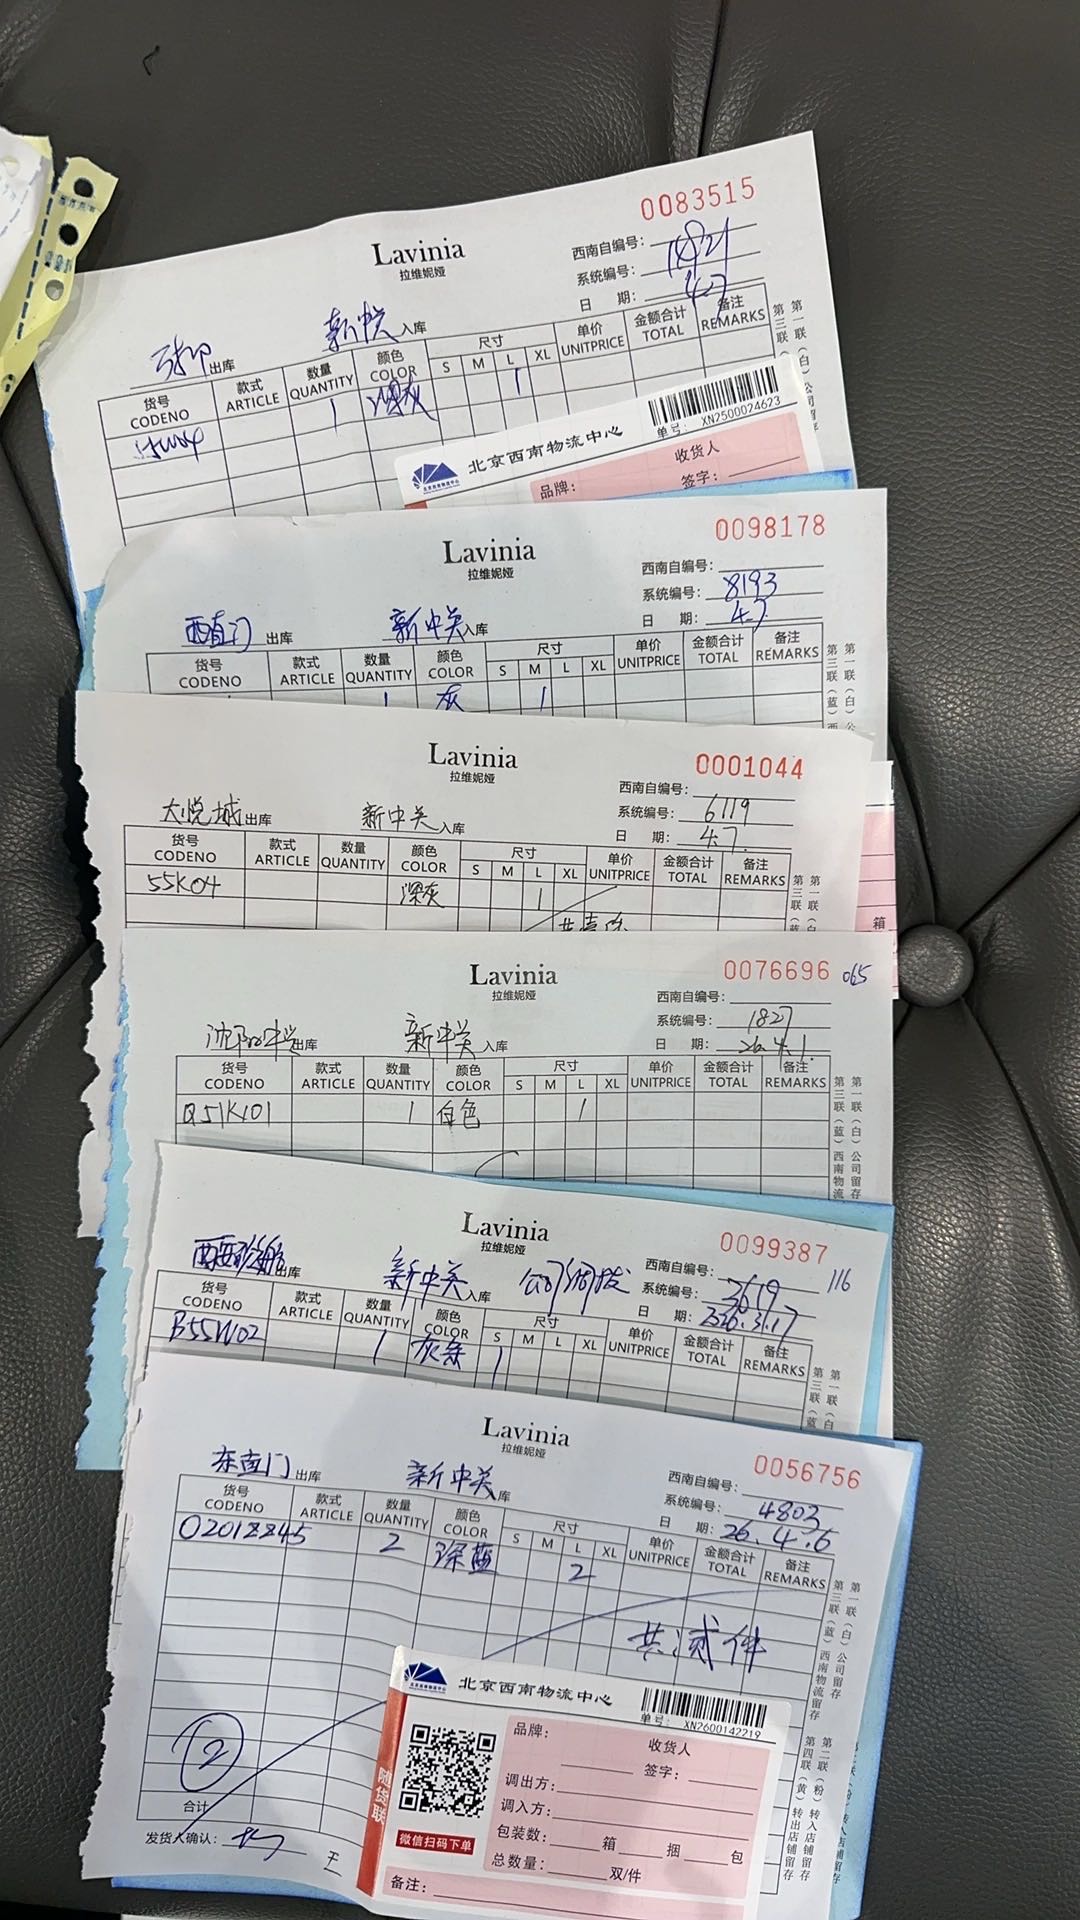 0083515
Lavinia
拉维妮娅
西南自编号：
系统编号：1821
日 期：4.7
出库 新中关 入库
货号 CODENO 款式 ARTICLE 数量 QUANTITY 颜色 COLOR 尺寸 S M L XL 单价 UNITPRICE 金额合计 TOTAL 备注 REMARKS
1 深灰 1
第一联（白）公司
第三联
北京西南物流中心
单号：XN2500024623
收货人
品牌： 签字：
0098178
Lavinia
拉维妮娅
西南自编号：
系统编号：8193
日 期：4.7
西直门 出库 新中关 入库
货号 CODENO 款式 ARTICLE 数量 QUANTITY 颜色 COLOR 尺寸 S M L XL 单价 UNITPRICE 金额合计 TOTAL 备注 REMARKS
1 灰 1
第一联（白）公
第三联（蓝）西
0001044
Lavinia
拉维妮娅
西南自编号：
系统编号：6119
日 期：4.7.
大悦城 出库 新中关 入库
货号 CODENO 款式 ARTICLE 数量 QUANTITY 颜色 COLOR 尺寸 S M L XL 单价 UNITPRICE 金额合计 TOTAL 备注 REMARKS
55K04 深灰 1
共壹件
第一联（白
第三联（蓝
箱
0076696 065
Lavinia
拉维妮娅
西南自编号：
系统编号：1827
日 期：26.4.1.
沈阳中兴 出库 新中关 入库
货号 CODENO 款式 ARTICLE 数量 QUANTITY 颜色 COLOR 尺寸 S M L XL 单价 UNITPRICE 金额合计 TOTAL 备注 REMARKS
Q51K101 1 白色 1
第一联（白）公司留存
第三联（蓝）西南物流
0099387 116
Lavinia
拉维妮娅
西南自编号：
系统编号：3619
日 期：2026.3.17
出库 新中关 入库 公司调拨
货号 CODENO 款式 ARTICLE 数量 QUANTITY 颜色 COLOR 尺寸 S M L XL 单价 UNITPRICE 金额合计 TOTAL 备注 REMARKS
B55W02 1 灰条 1
第一联（白
第三联（蓝
0056756
Lavinia
拉维妮娅
西南自编号：
系统编号：4803
日 期：26.4.6
东直门 出库 新中关 入库
货号 CODENO 款式 ARTICLE 数量 QUANTITY 颜色 COLOR 尺寸 S M L XL 单价 UNITPRICE 金额合计 TOTAL 备注 REMARKS
02018845 2 深蓝 2
共贰件
2
合计
发货人确认：
王
第一联（白）公司留存
第三联（蓝）西南物流留存
第二联（粉）转入店铺留存
第四联（黄）转出店铺留存
北京西南物流中心
单号：XN2600142219
随货联
微信扫码下单
品牌： 收货人
签字：
调出方：
调入方：
包装数： 箱 捆 包
总数量： 双/件
备注：